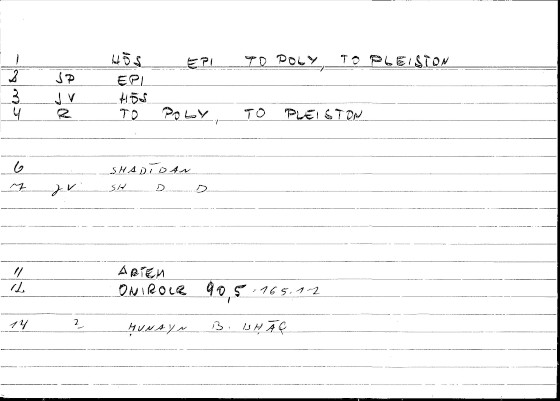 1 HŌS EPI TO POLY, TO PLEISTON
2 SP EPI
3 JV HŌS
4 R TO POLY, TO PLEISTON
6 SHADĪDAN
7 JV SH D D
11 ARTEM
12 ONIROCR 90,5-165.12
14 2 ḤUNAYN B. ISḤĀQ